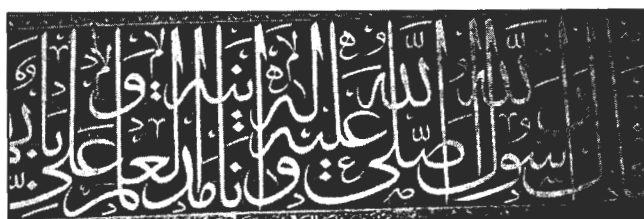 رسول الله صلى الله عليه واله انا مدينه العلم وعلي بابها